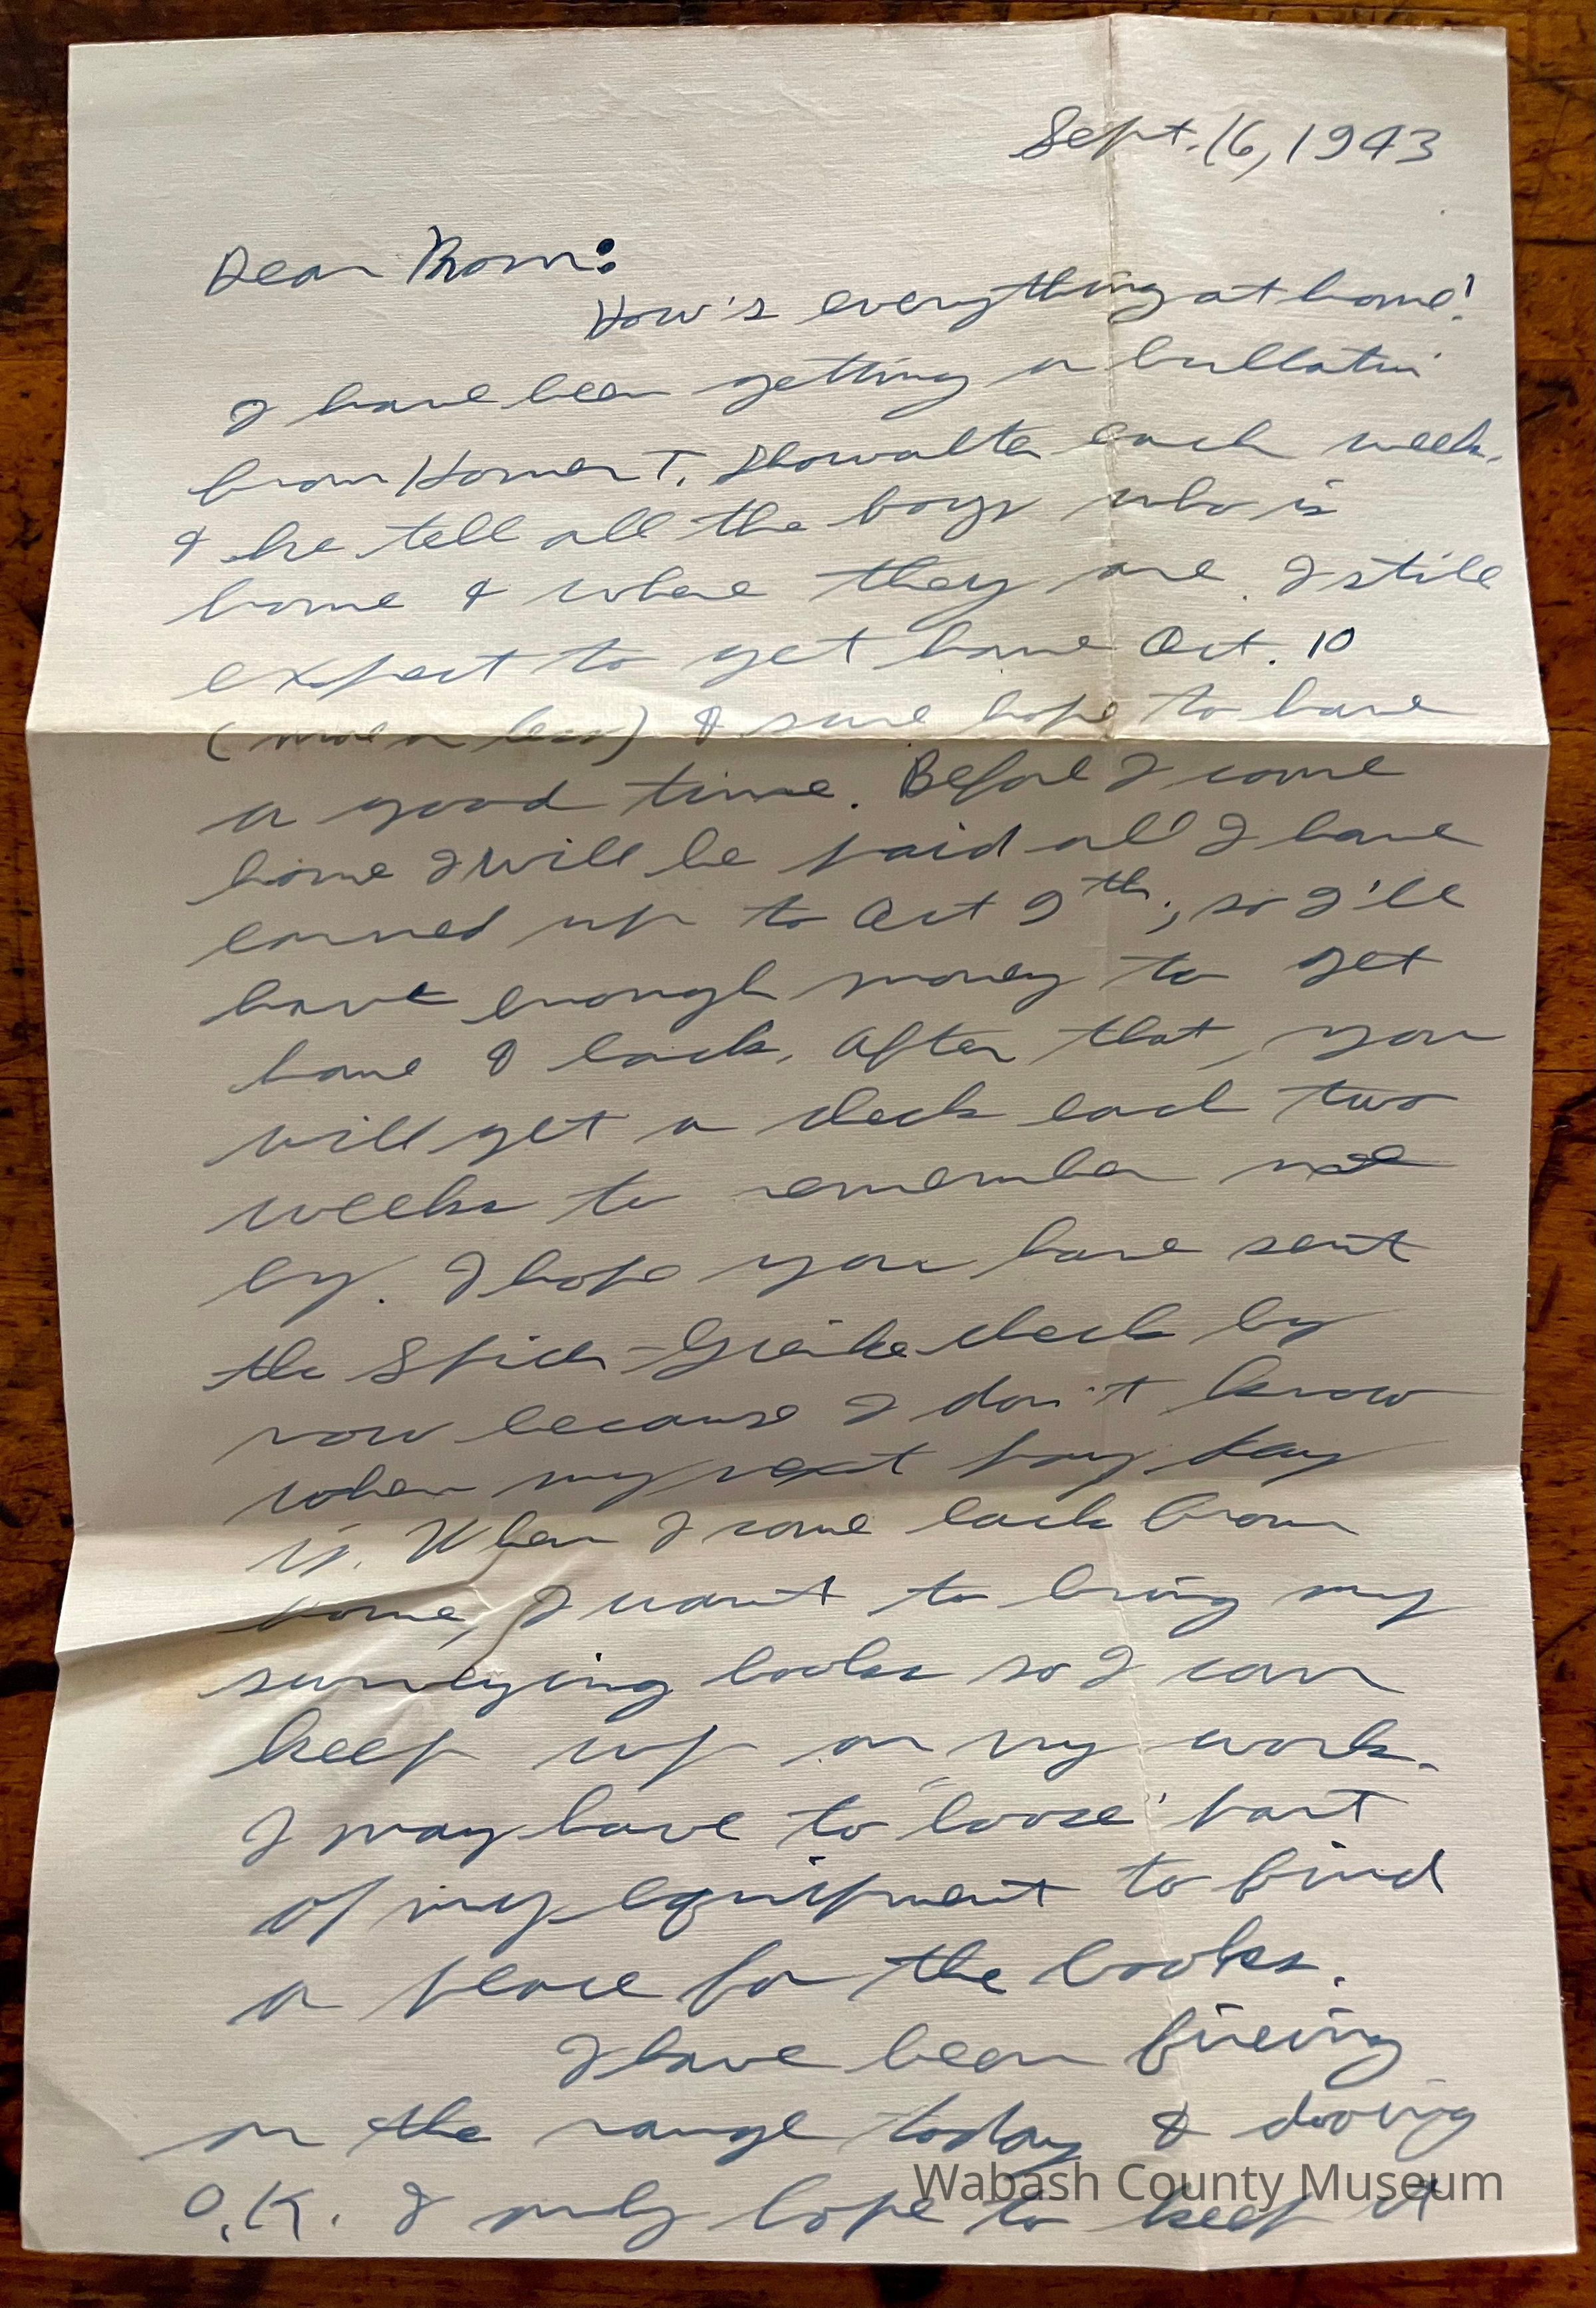 Sept. 16, 1943
Dear Mom:
How's everything at home!
I have been getting a bullatin
from Homer T. Showalter each week.
& he tell all the boys who is
home & where they are. I still
expect to get home Oct. 10
(more or less) & sure hope to have
a good time. Before I come
home I will be paid all I have
earned up to Oct 9th; so I'll
have enough money to get
home & back. After that, you
will get a check each two
weeks to remember me
by. I hope you have sent
the check by
now because I don't know
when my next pay day
is. When I come back from
home, I want to bring my
surveying books so I can
keep up on my work.
I may have to "loose" part
of my equipment to find
a place for the books.
I have been fireing
on the range today & dooing
O.K. I only hope to keep it
Wabash County Museum